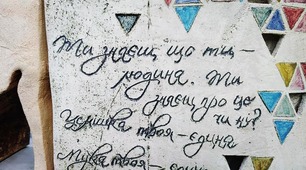 Ти знаєш, що ти –
людина. Ти
знаєш про це
чи ні?
Усмішка твоя – єдина
Мука твоя – єдина